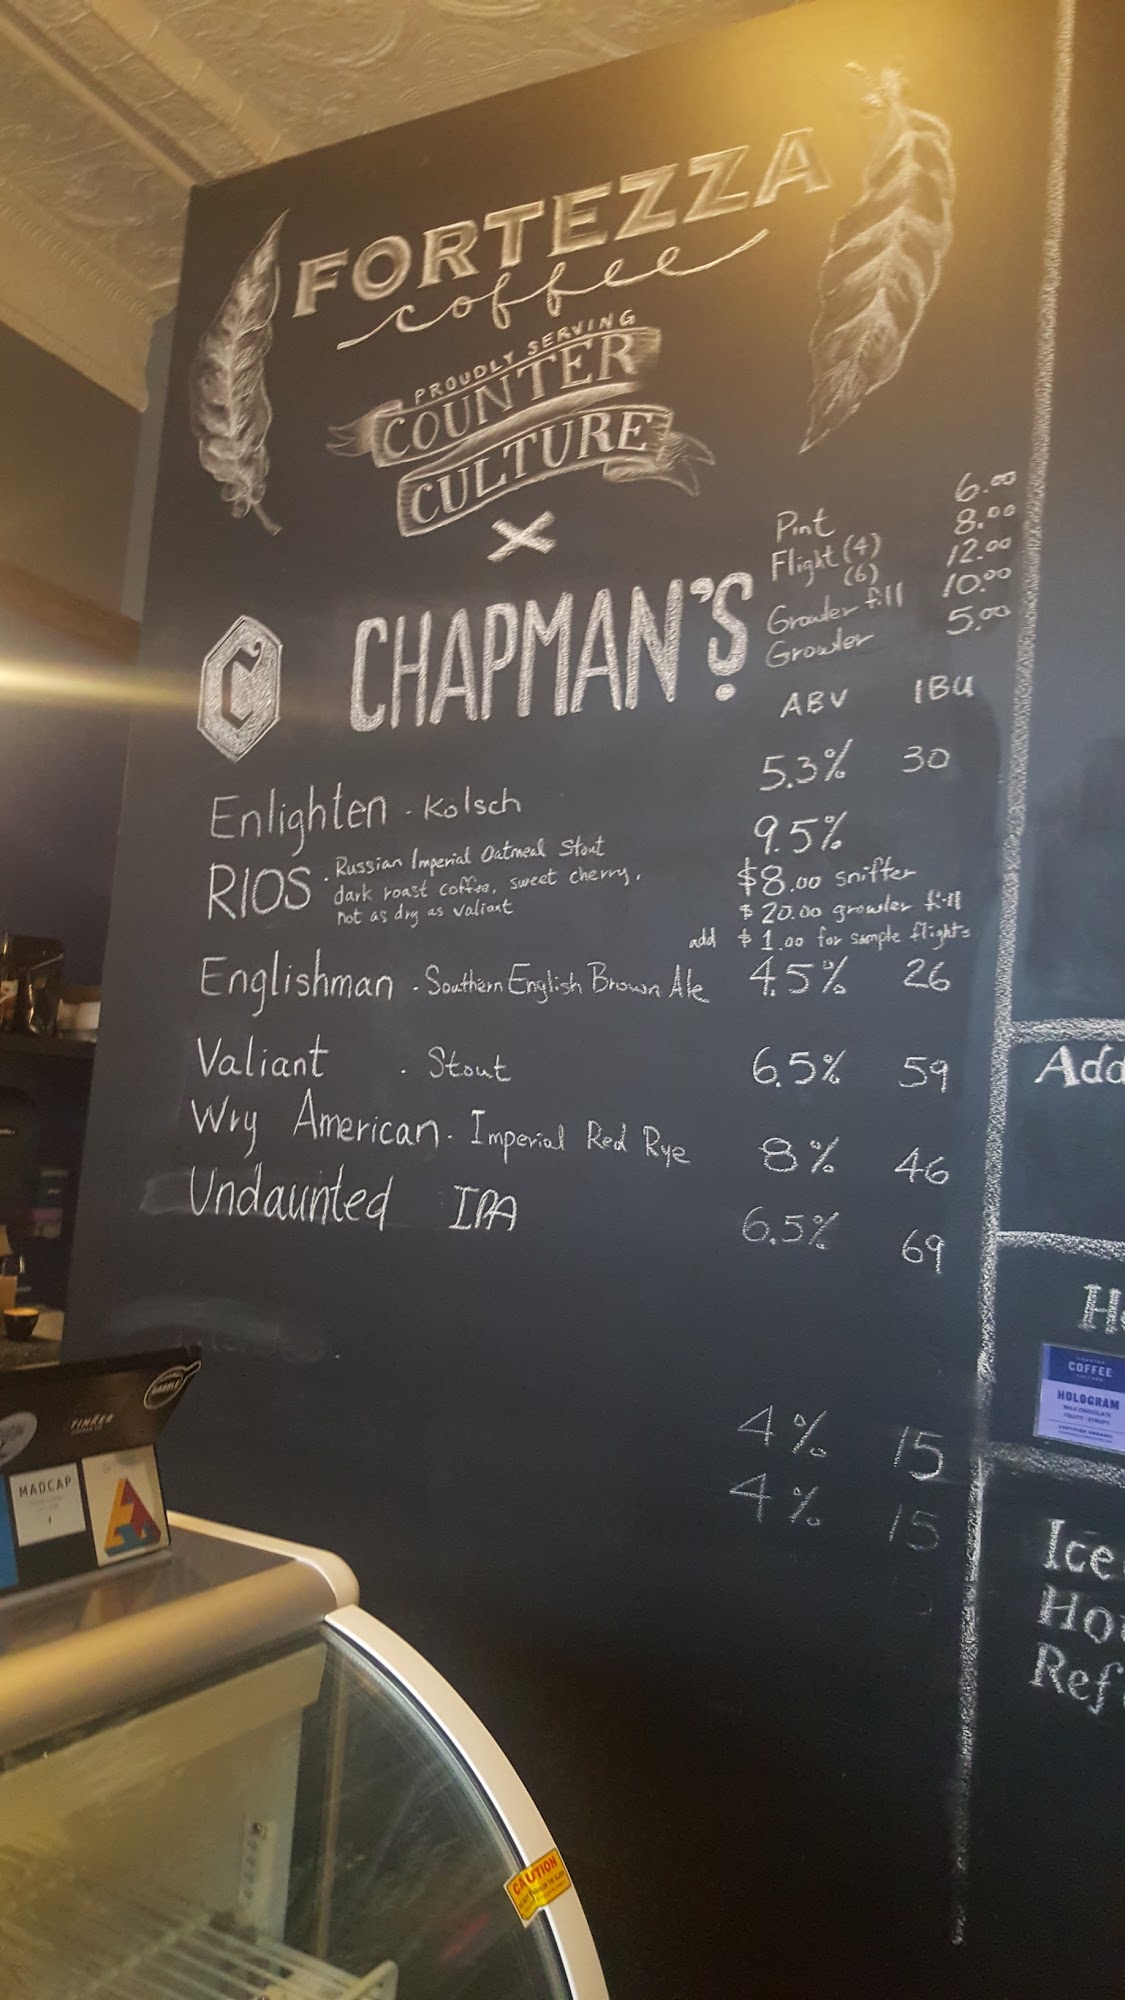 FORTEZZA
coffee
PROUDLY SERVING
COUNTER
CULTURE
X
C CHAPMAN'S
Pint 6.00
Flight (4) 8.00
(6) 12.00
Growler fill 10.00
Growler 5.00
ABV IBU
Enlighten · Kolsch 5.3% 30
RIOS · Russian Imperial Oatmeal Stout 9.5%
dark roast coffee, sweet cherry, $8.00 snifter
not as dry as valiant $20.00 growler fill
add $1.00 for sample flights
Englishman · Southern English Brown Ale 4.5% 26
Valiant · Stout 6.5% 59
Wry American · Imperial Red Rye 8% 46
Undaunted IPA 6.5% 69
4% 15
4% 15
Add
H
COFFEE
HOLOGRAM
MILK CHOCOLATE
Ice
Ho
Ref
MADCAP
CAUTION